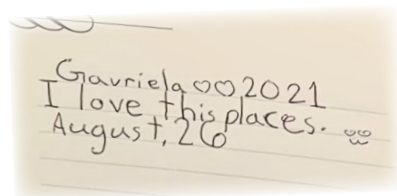 Gavriela ♡♡ 2021
I love this places.
August, 26